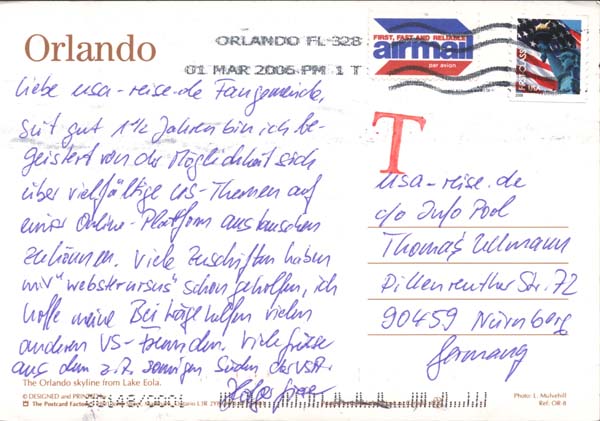 Orlando
ORLANDO FL 328
01 MAR 2006 PM 1 T
FIRST, FAST AND RELIABLE
airmail
par avion
FIRST-CLASS
Liebe usa-reise.de Fangemeinde,
seit gut 1 1/2 Jahren bin ich be-
geistert von der Möglichkeit sich
über vielfältige US-Themen auf
einer Online-Plattform austauschen
zu können. Viele Zuschriften haben
mir schon geholfen, ich
hoffe meine Beiträge helfen vielen
anderen US-Freunden. Viele Grüsse
aus dem z.Z. sonnigen Süden der USA.
T
usa-reise.de
c/o Info Pool
Thomas Ullmann
Pillenreuther Str. 72
90459 Nürnberg
Germany
The Orlando skyline from Lake Eola.
© DESIGNED and
The Postcard Factory
Photo: L. Mulvehill
Ref: OR-8